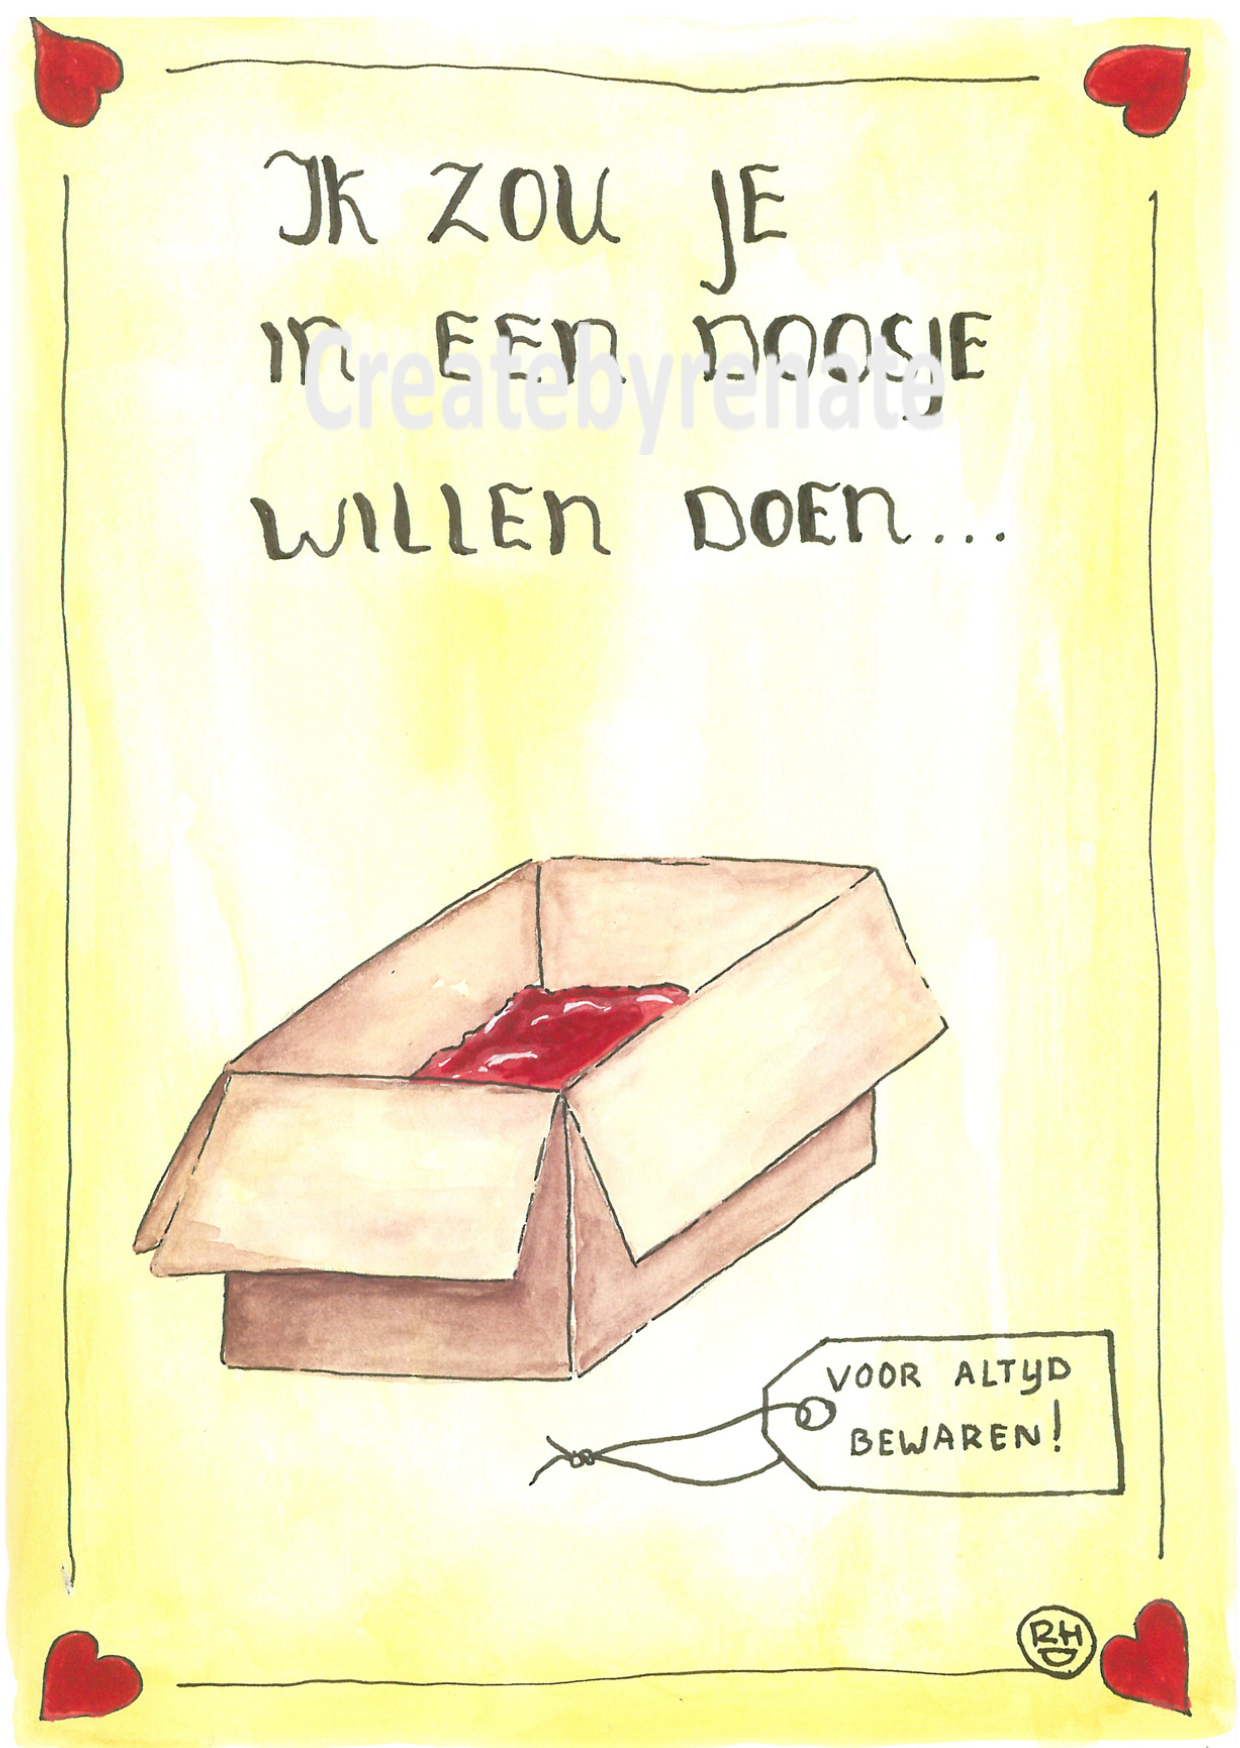 Ik ZOU JE
In EEn DOOSJE
Createbyrenate
WILLEn DOEn...
VOOR ALTYD
BEWAREN!
RH